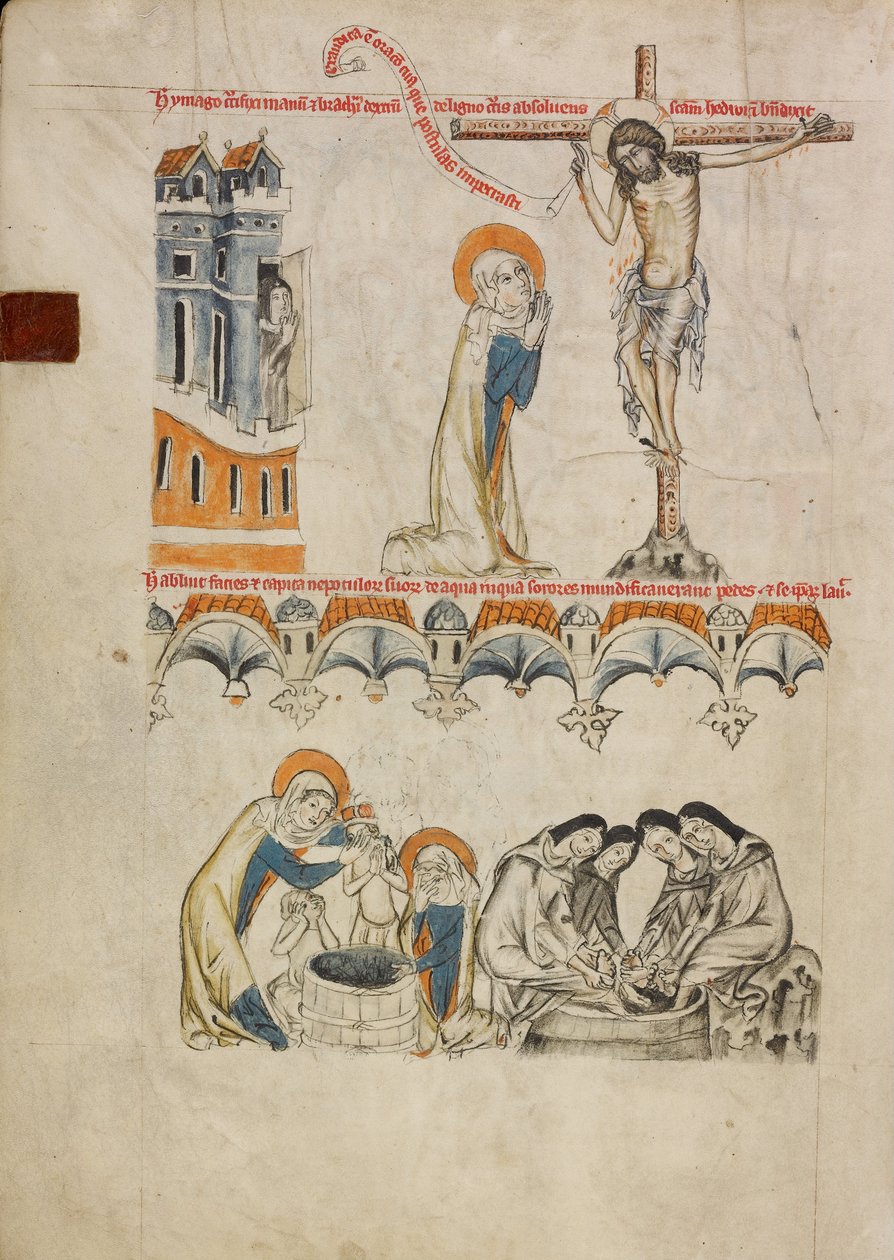 Exaudita est oracio tua que postulas impetrasti
Hic ymago crucifixi manum et brachium dextrum de ligno crucis absolvens sanctam hedwigem benedixit
Hic abluit facies et capita nepotulorum suorum de aqua in qua sorores mundificaverant pedes et se ipsam lavit.